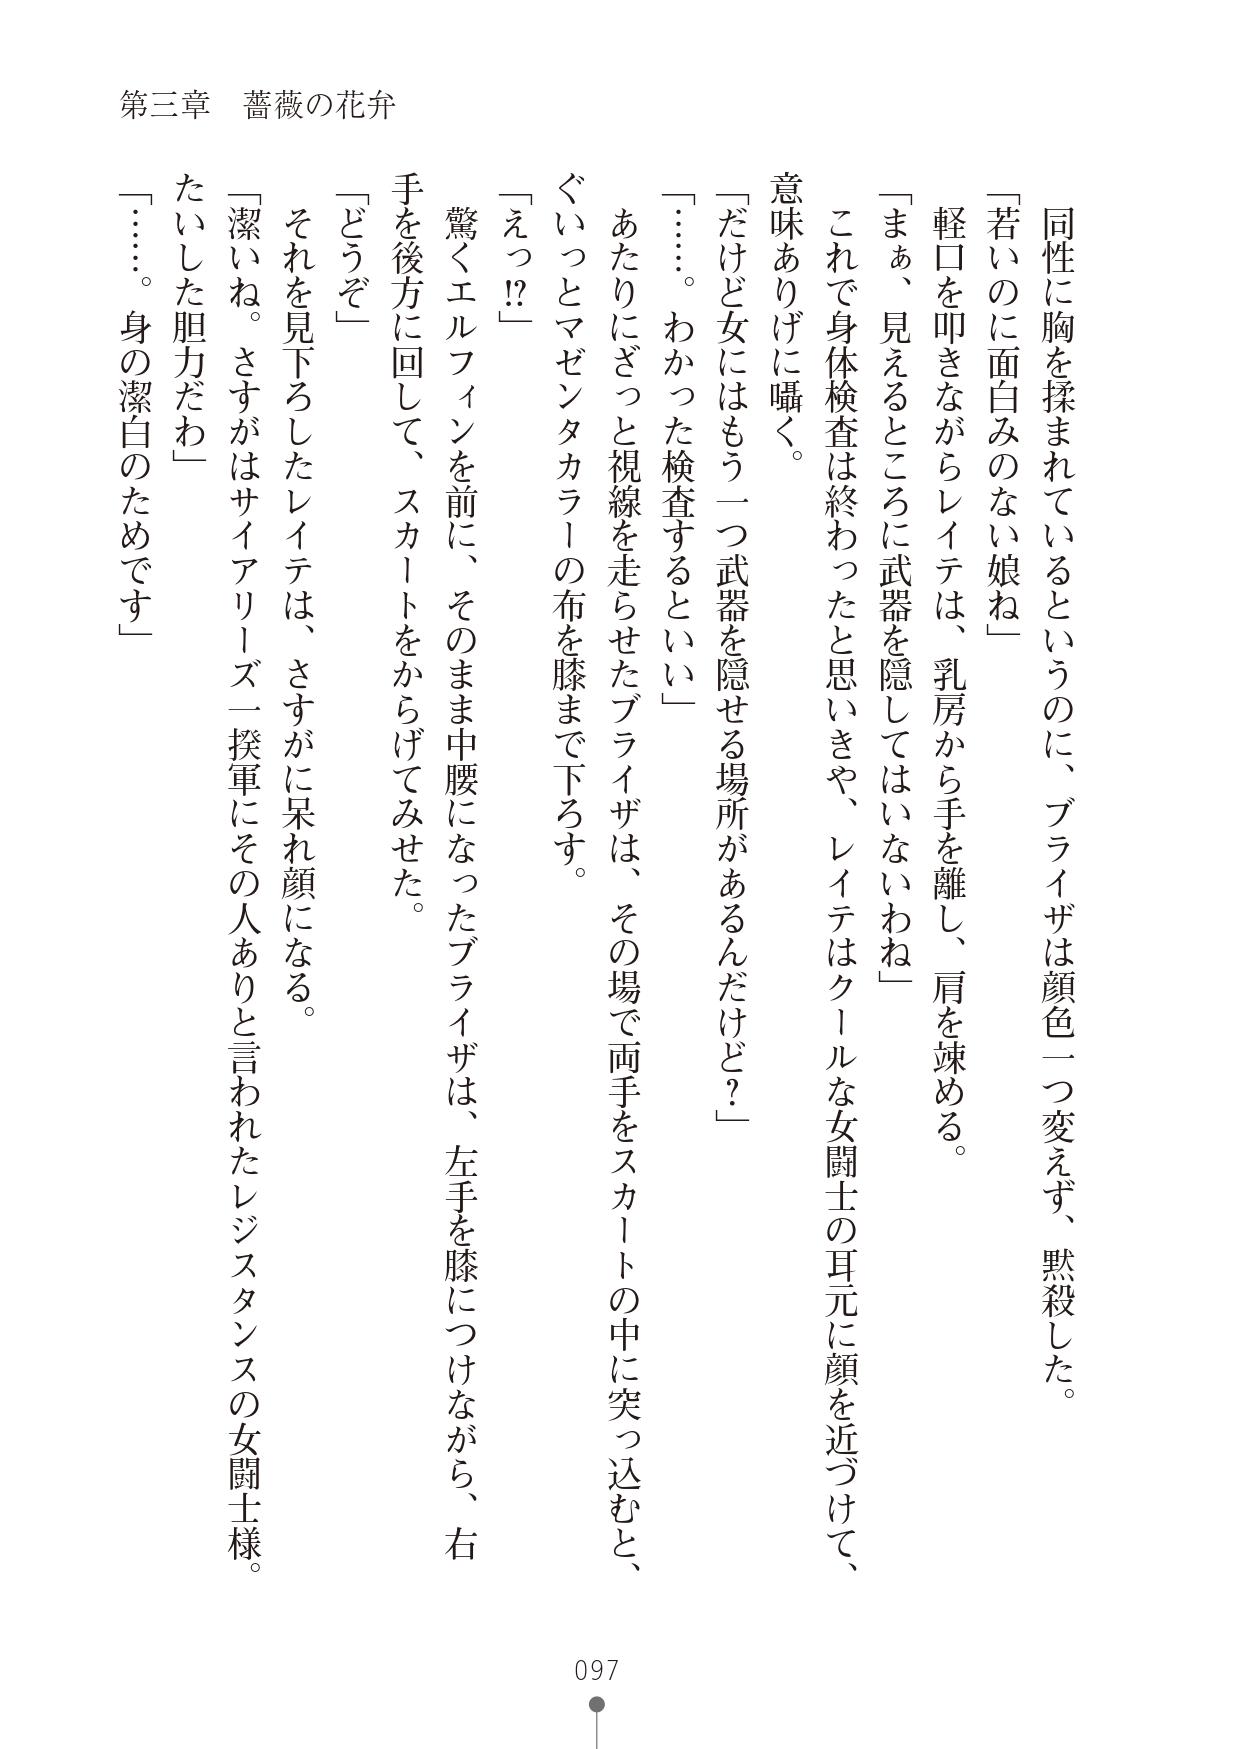 第三章　薔薇の花弁
同性に胸を揉まれているというのに、ブライザは顔色一つ変えず、黙殺した。
「若いのに面白みのない娘ね」
軽口を叩きながらレイテは、乳房から手を離し、肩を竦める。
「まぁ、見えるところに武器を隠してはいないわね」
これで身体検査は終わったと思いきや、レイテはクールな女闘士の耳元に顔を近づけて、
意味ありげに囁く。
「だけど女にはもう一つ武器を隠せる場所があるんだけど？」
「……。わかった検査するといい」
あたりにざっと視線を走らせたブライザは、その場で両手をスカートの中に突っ込むと、
ぐいっとマゼンタカラーの布を膝まで下ろす。
「えっ!?」
驚くエルフィンを前に、そのまま中腰になったブライザは、左手を膝につけながら、右
手を後方に回して、スカートをからげてみせた。
「どうぞ」
それを見下ろしたレイテは、さすがに呆れ顔になる。
「潔いね。さすがはサイアリーズ一揆軍にその人ありと言われたレジスタンスの女闘士様。
たいした胆力だわ」
「……。身の潔白のためです」
097